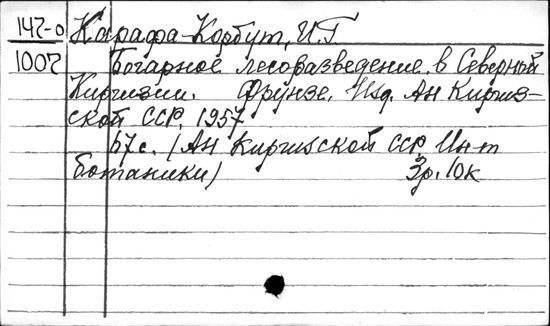 147-0 Карафа-Корбут, И.Г
1007 Богарное лесоразведение в Северной
Киргизии. Фрунзе, Изд. Ан Киргиз-
ской ССР, 1957
67 с. (Ан Киргизской ССР. Ин-т
ботаники) 3р. 10к